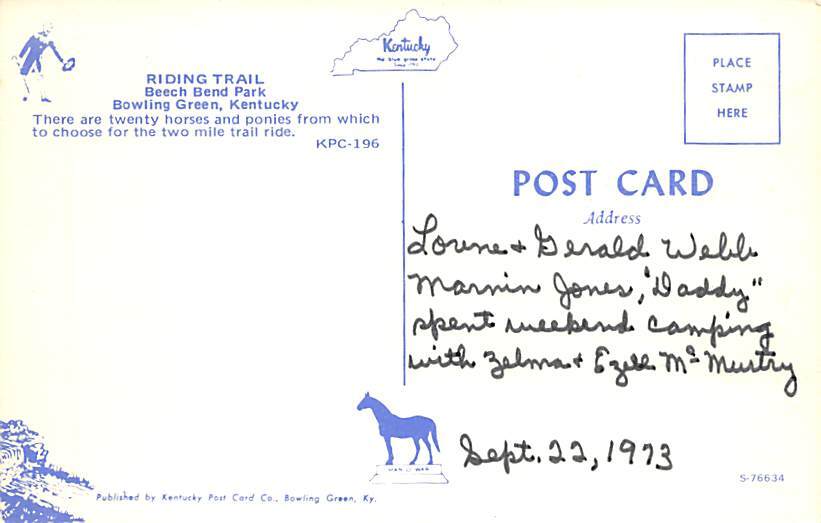 RIDING TRAIL
Beech Bend Park
Bowling Green, Kentucky
There are twenty horses and ponies from which
to choose for the two mile trail ride.
KPC-196
Kentucky
the blue grass state
PLACE
STAMP
HERE
POST CARD
Address
Lorene & Gerald Webb
Marnin Jones, "Daddy"
spent weekend camping
with Zelma & Ezell Mc Murtry
Sept. 22, 1973
MAN O' WAR
S-76634
Published by Kentucky Post Card Co., Bowling Green, Ky.